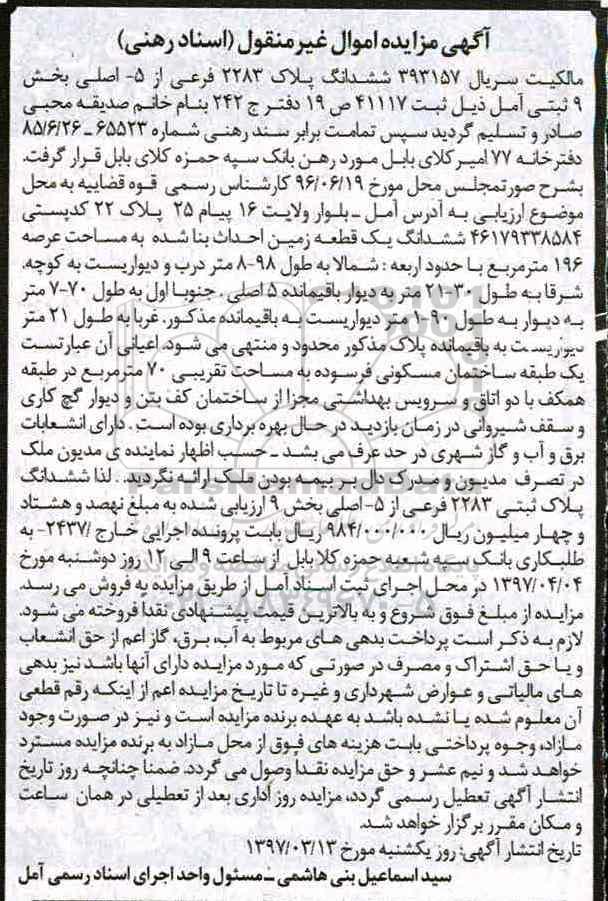 آگهی مزایده اموال غیر منقول (اسناد رهنی)
مالکیت سریال ۳۹۳۱۵۷ ششدانگ پلاک ۲۲۸۳ فرعی از ۵- اصلی بخش
۹ ثبتی آمل ذیل ثبت ۴۱۱۱۷ ص ۱۹ دفتر ج ۲۴۲ بنام خانم صدیقه محبی
صادر و تسلیم گردید سپس تمامت برابر سند رهنی شماره ۶۵۵۲۳ ـ ۸۵/۶/۲۶
دفترخانه ۷۷ امیرکلای بابل مورد رهن بانک سپه حمزه کلای بابل قرار گرفت.
بشرح صورتمجلس محل مورخ ۹۶/۰۶/۱۹ کارشناس رسمی قوه قضاییه به محل
موضوع ارزیابی به آدرس آمل ـ بلوار ولایت ۱۶ پیام ۲۵ پلاک ۲۲ کدپستی
۴۶۱۷۹۳۳۸۵۸۴ ششدانگ یک قطعه زمین احداث بنا شده به مساحت عرصه
۱۹۶ مترمربع با حدود اربعه : شمالا به طول ۹۸-۸ متر درب و دیواریست به کوچه.
شرقا به طول ۳۰-۲۱ متر به دیوار باقیمانده ۵ اصلی . جنوبا اول به طول ۷۰-۷ متر
به دیوار به طول ۹۰-۱ متر دیواریست به باقیمانده مذکور. غربا به طول ۲۱ متر
دیواریست به باقیمانده پلاک مذکور محدود و منتهی می شود. اعیانی آن عبارتست
یک طبقه ساختمان مسکونی فرسوده به مساحت تقریبی ۷۰ مترمربع در طبقه
همکف با دو اتاق و سرویس بهداشتی مجزا از ساختمان کف بتن و دیوار گچ کاری
و سقف شیروانی در زمان بازدید در حال بهره برداری بوده است . دارای انشعابات
برق و آب و گاز شهری در حد عرف می بشد ـ حسب اظهار نماینده ی مدیون ملک
در تصرف مدیون و مدرک دال بر بیمه بودن ملک ارائه نگردید. . لذا ششدانگ
پلاک ثبتی ۲۲۸۳ فرعی از ۵- اصلی بخش ۹ ارزیابی شده به مبلغ نهصد و هشتاد
و چهار میلیون ریال ۹۸۴/۰۰۰/۰۰۰ ریال بابت پرونده اجرایی خارج /۲۴۳۷- به
طلبکاری بانک سپه شعبه حمزه کلا بابل از ساعت ۹ الی ۱۲ روز دوشنبه مورخ
۱۳۹۷/۰۴/۰۴ در محل اجرای ثبت اسناد آمل از طریق مزایده به فروش می رسد.
مزایده از مبلغ فوق شروع و به بالاترین قیمت پیشنهادی نقدا فروخته می شود.
لازم به ذکر است پرداخت بدهی های مربوط به آب، برق، گاز اعم از حق انشعاب
و یا حق اشتراک و مصرف در صورتی که مورد مزایده دارای آنها باشد نیز بدهی
های مالیاتی و عوارض شهرداری و غیره تا تاریخ مزایده اعم از اینکه رقم قطعی
آن معلوم شده یا نشده باشد به عهده برنده مزایده است و نیز در صورت وجود
مازاد، وجوه پرداختی بابت هزینه های فوق از محل مازاد به برنده مزایده مسترد
خواهد شد و نیم عشر و حق مزایده نقدا وصول می گردد. ضمنا چنانچه روز تاریخ
انتشار آگهی تعطیل رسمی گردد، مزایده روز اداری بعد از تعطیلی در همان ساعت
و مکان مقرر برگزار خواهد شد.
تاریخ انتشار آگهی: روز یکشنبه مورخ ۱۳۹۷/۰۳/۱۳
سید اسماعیل بنی هاشمی ـ مسئول واحد اجرای اسناد رسمی آمل